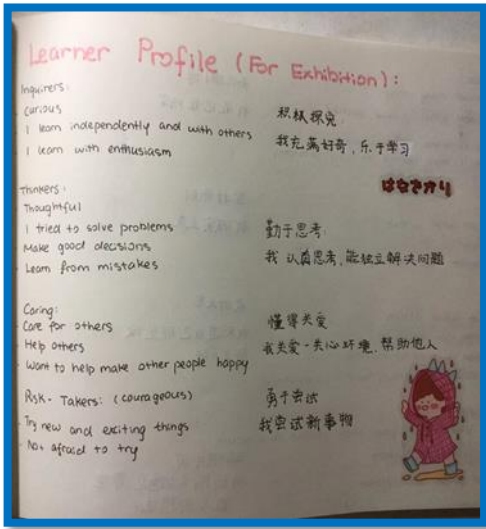 Learner Profile (For Exhibition):
Inquirers:
Curious
I learn independently and with others
I learn with enthusiasm
积极探究:
我充满好奇，乐于学习
はなざかり
Thinkers:
Thoughtful
I tried to solve problems
Make good decisions
Learn from mistakes
勤于思考:
我认真思考，能独立解决问题
Caring:
- Care for others
- Help others
- Want to help make other people happy
懂得关爱
我关爱、关心环境、帮助他人
Risk-Takers: (courageous)
- Try new and exciting things
- Not afraid to try
勇于尝试
我尝试新事物